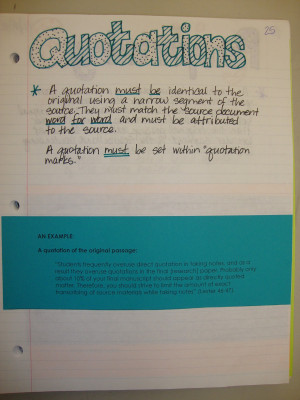 25
Quotations
* A quotation must be identical to the
original using a narrow segment of the
source. They must match the source document
word for word and must be attributed
to the source.
A quotation must be set within "quotation
marks."
AN EXAMPLE:
A quotation of the original passage:
"Students frequently overuse direct quotation in taking notes, and as a
result they overuse quotations in the final [research] paper. Probably only
about 10% of your final manuscript should appear as directly quoted
matter. Therefore, you should strive to limit the amount of exact
transcribing of source materials while taking notes" (Lester 46-47).